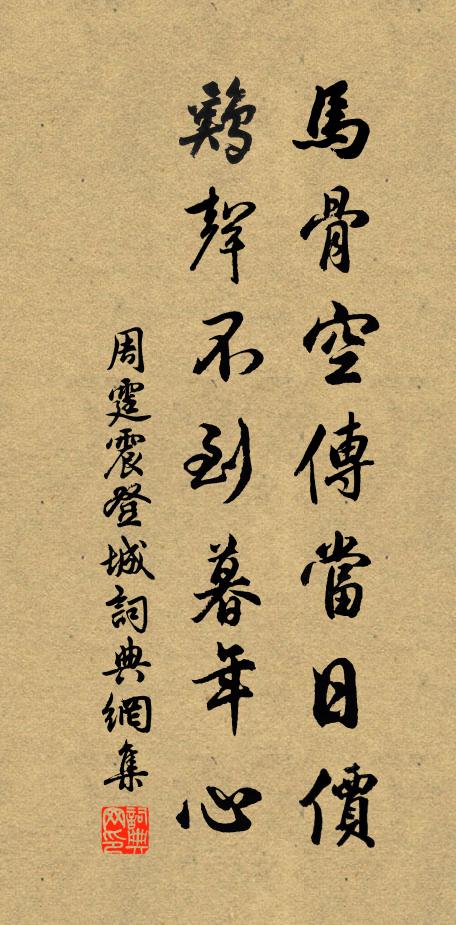 馬骨空傳當日價
鷄聲不到暮年心
周霆震登城詞典網集
詞典網印